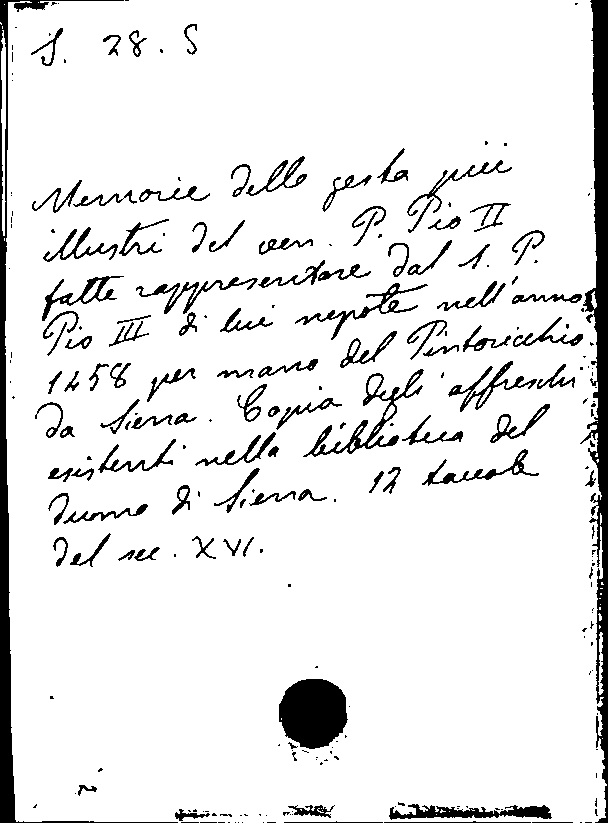 S. 28. S
Memorie delle gesta più
illustri del ven. P. Pio II
fatte rappresentare dal s. P.
Pio III di lui nepote nell'anno
1458 per mano del Pintoricchio
da Siena. Copia degli affreschi
esistenti nella biblioteca del
duomo di Siena. 12 tavole
del sec. XVI.